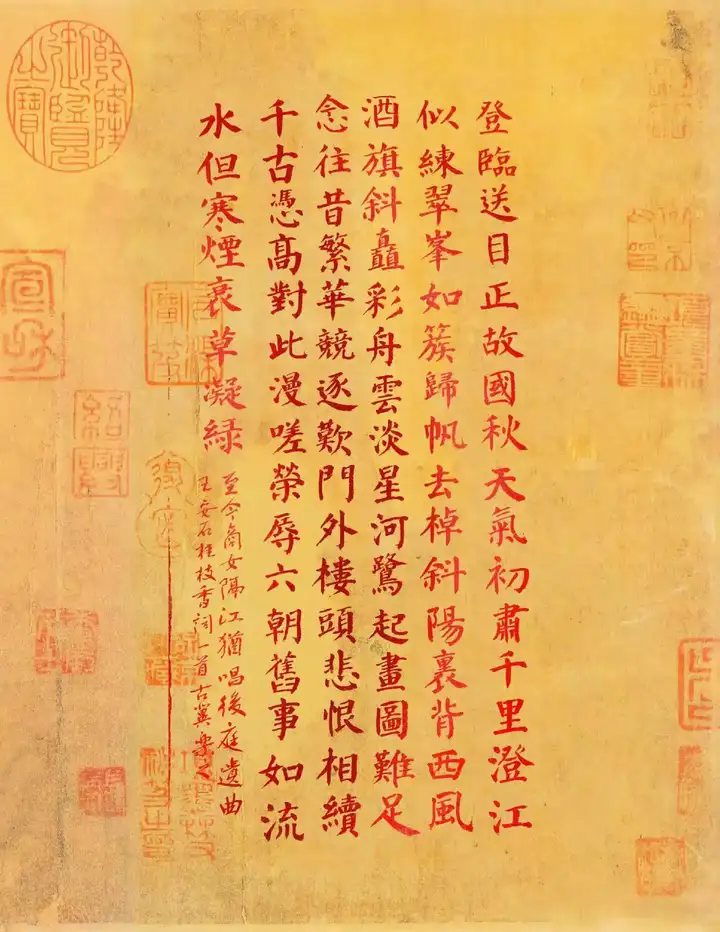 登臨送目正故國秋天氣初肅千里澄江
似練翠峯如簇歸帆去棹斜陽裏背西風
酒旗斜矗彩舟雲淡星河鷺起畫圖難足
念往昔繁華競逐歎門外樓頭悲恨相續
千古憑高對此漫嗟榮辱六朝舊事如流
水但寒煙衰草凝緑
至今商女隔江猶唱後庭遺曲
王安石桂枝香詞一首古冀
乾隆御覽之寶
宣和
紹興